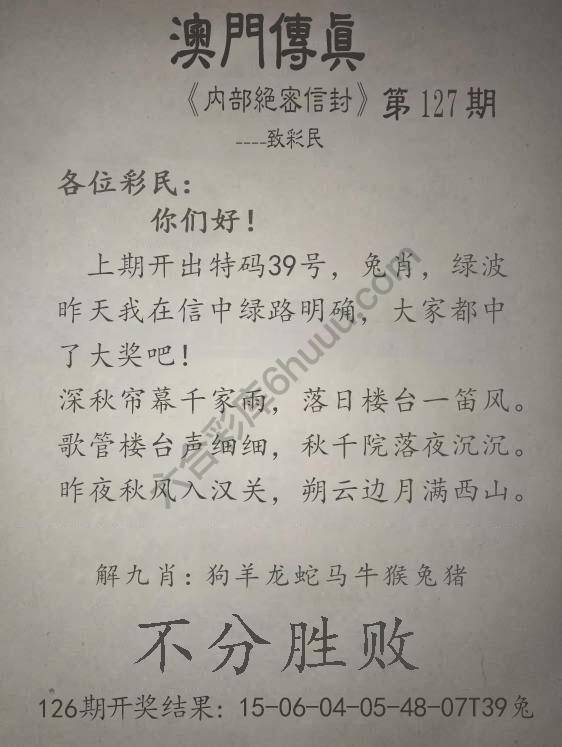 澳門傳眞
《内部絕密信封》第127期
----致彩民
各位彩民：
你们好！
上期开出特码39号，兔肖，绿波
昨天我在信中绿路明确，大家都中
了大奖吧！
深秋帘幕千家雨，落日楼台一笛风。
歌管楼台声细细，秋千院落夜沉沉。
昨夜秋风入汉关，朔云边月满西山。
解九肖：狗羊龙蛇马牛猴兔猪
不分胜败
126期开奖结果：15-06-04-05-48-07T39兔
六合彩库6huuu.com